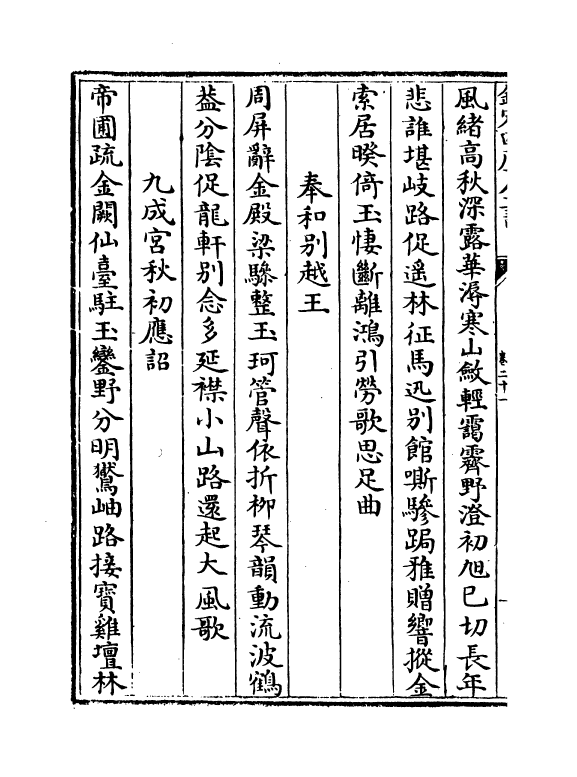 風緒高秋深露華潯寒山斂輕靄霽野澄初旭已切長年
悲誰堪岐路促遥林征馬迅别館嘶驂跼雅贈響摐金
索居暌倚玉悽斷離鴻引勞歌思足曲
奉和别越王
周屏辭金殿梁驂整玉珂管聲依折柳琴韻動流波鶴
葢分陰促龍軒别念多延襟小山路還起大風歌
九成宮秋初應詔
帝圃疏金闕仙臺駐玉鑾野分明鷟岫路接寶雞壇林